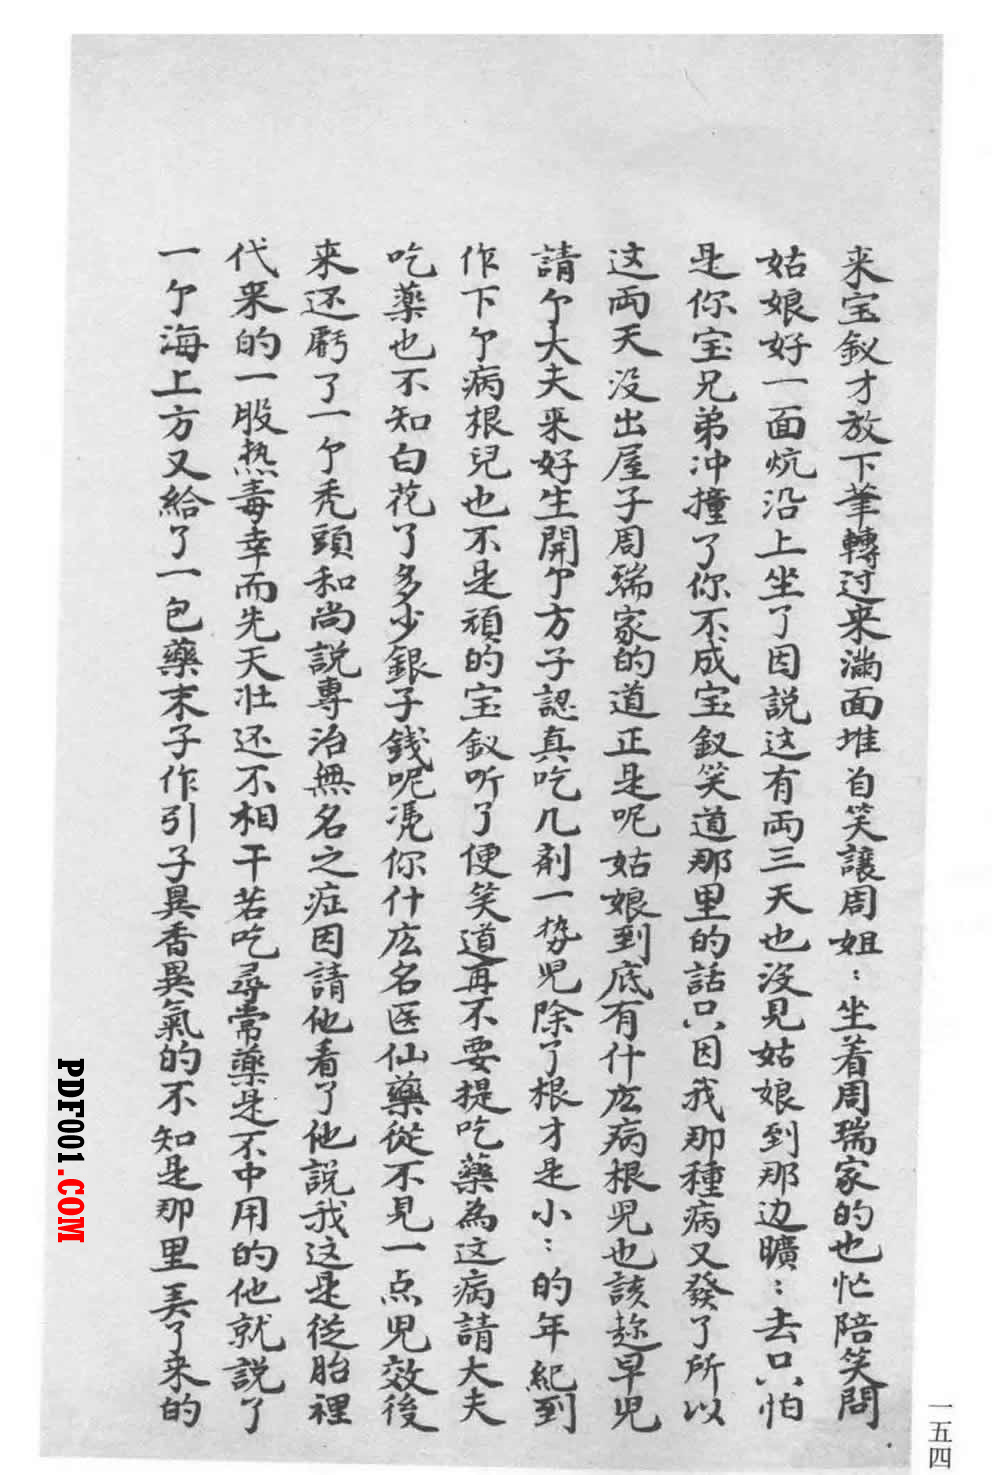 来宝釵才放下筆轉过来满面堆自笑讓周姐：坐着周瑞家的也忙陪笑問
姑娘好一面炕沿上坐了因説这有両三天也没見姑娘到那边曠：去只怕
是你宝兄弟冲撞了你不成宝釵笑道那里的話只因我那種病又發了所以
这両天没出屋子周瑞家的道正是呢姑娘到底有什広病根児也該趂早児
請个大夫来好生開个方子認真吃几剤一势児除了根才是小：的年紀到
作下个病根兒也不是頑的宝釵听了便笑道再不要提吃藥為这病請大夫
吃藥也不知白花了多少銀子錢呢凭你什広名医仙藥從不見一点児效後
来还虧了一个禿頭和尚説專治無名之症因請他看了他説我这是從胎裡
代来的一股热毒幸而先天壮还不相干若吃尋常藥是不中用的他就説了
一个海上方又給了一包藥末子作引子異香異氣的不知是那里美了来的
一五四
PDF001.COM